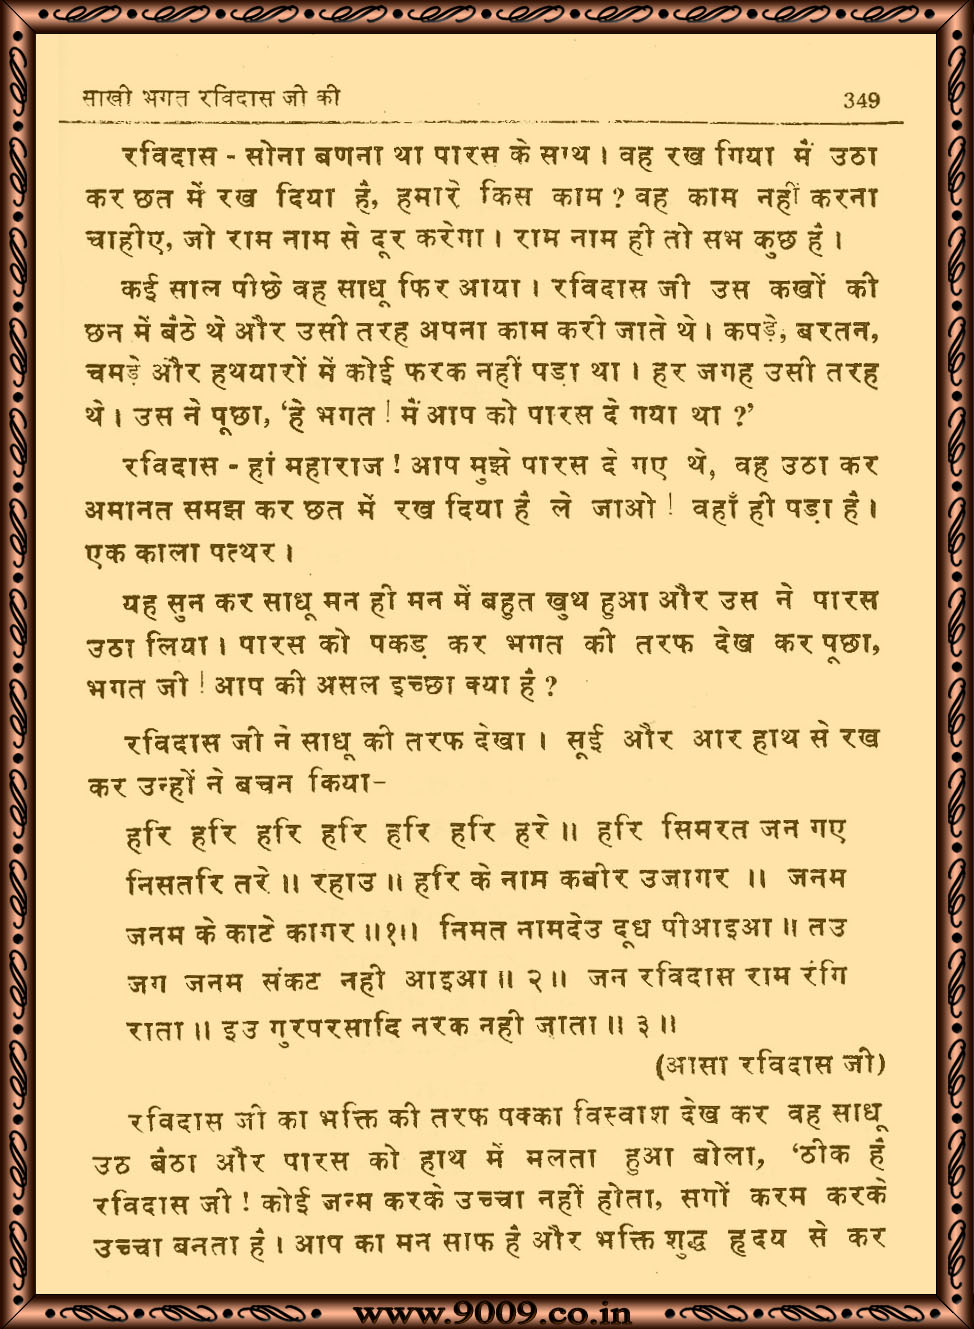 साखी भगत रविदास जी की 349
रविदास - सोना बणना था पारस के साथ । वह रख गिया मैं उठा
कर छत में रख दिया है, हमारे किस काम ? वह काम नहीं करना
चाहीए, जो राम नाम से दूर करेगा । राम नाम ही तो सभ कुछ है ।
कई साल पीछे वह साधू फिर आया । रविदास जी उस कखों की
छन में बैठे थे और उसी तरह अपना काम करी जाते थे । कपड़े, बरतन,
चमड़े और हथयारों में कोई फरक नहीं पड़ा था । हर जगह उसी तरह
थे । उस ने पूछा, ‘हे भगत ! मैं आप को पारस दे गया था ?’
रविदास - हां महाराज ! आप मुझे पारस दे गए थे, वह उठा कर
अमानत समझ कर छत में रख दिया है ले जाओ ! वहाँ ही पड़ा है ।
एक काला पत्थर ।
यह सुन कर साधू मन ही मन में बहुत खुथ हुआ और उस ने पारस
उठा लिया । पारस को पकड़ कर भगत की तरफ देख कर पूछा,
भगत जी ! आप की असल इच्छा क्या है ?
रविदास जी ने साधू की तरफ देखा । सूई और आर हाथ से रख
कर उन्हों ने बचन किया-
हरि हरि हरि हरि हरि हरि हरे ॥ हरि सिमरत जन गए
निसतरि तरे ॥ रहाउ ॥ हरि के नाम कबीर उजागर ॥ जनम
जनम के काटे कागर ॥१॥ निमत नामदेउ दूध पीआइआ ॥ तउ
जग जनम संकट नही आइआ ॥ २ ॥ जन रविदास राम रंगि
राता ॥ इउ गुरपरसादि नरक नही जाता ॥ ३ ॥
(आसा रविदास जी)
रविदास जी का भक्ति की तरफ पक्का विस्वाश देख कर वह साधू
उठ बैठा और पारस को हाथ में मलता हुआ बोला, ‘ठीक है
रविदास जी ! कोई जन्म करके उच्चा नहीं होता, सगों करम करके
उच्चा बनता है । आप का मन साफ है और भक्ति शुद्ध हृदय से कर
www.9009.co.in